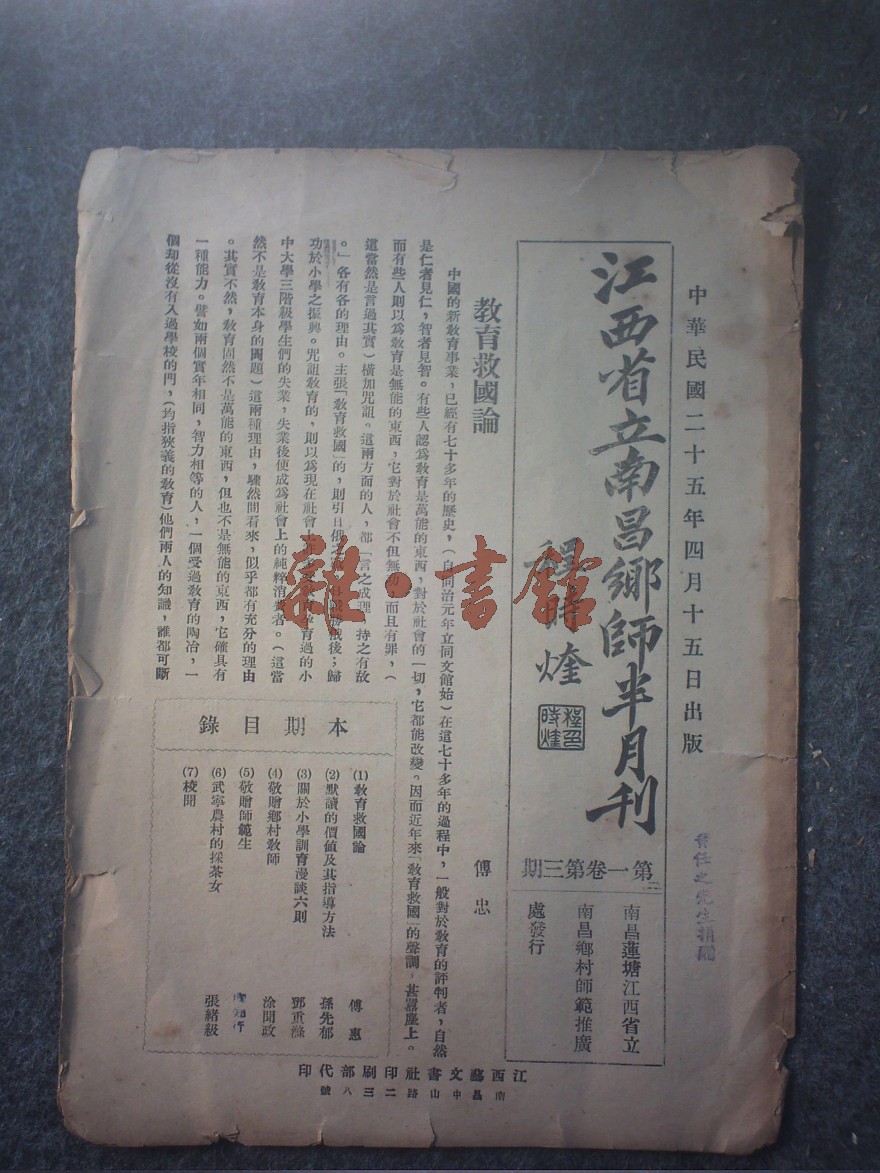 中華民國二十五年四月十五日出版
江西省立南昌鄉師半月刊
程時煃
程時煃
第一卷第三期
南昌蓮塘江西省立
南昌鄉村師範推廣
處發行
教育救國論
傅忠
中國的新教育事業，已經有七十多年的歷史，（自同治元年立同文館始）在這七十多年的過程中，一般對於教育的評判者，自然
是仁者見仁，智者見智。有些人認爲教育是萬能的東西，對於社會的一切，它都能改變。因而近年來「教育救國」的聲調，甚囂塵上。
而有些人則以爲教育是無能的東西，它對於社會不但無功，而且有罪，（
這當然是言過其實）橫加咒詛。這兩方面的人，都「言之成理，持之有故
。」各有各的理由。主張「教育救國」的，則引日俄之戰 戰後；歸
功於小學之振興。咒詛教育的，則以爲現在社會上 育過的小
中大學三階級學生們的失業，失業後便成爲社會上的純粹消費者。（這當
然不是教育本身的問題）這兩種理由，驟然間看來，似乎都有充分的理由
。其實不然，教育固然不是萬能的東西，但也不是無能的東西，它確具有
一種能力。譬如兩個實年相同，智力相等的人，一個受過教育的陶冶，一
個却從沒有入過學校的門，（均指狹義的教育）他們兩人的知識，誰都可斷
本期目錄
(1)教育救國論 傅惠
(2)默讀的價值及其指導方法 孫先郁
(3)關於小學訓育漫談六則 鄧重滌
(4)敬贈鄉村教師 涂聞政
(5)敬贈師範生
(6)武寧農村的採茶女 張緒級
(7)校聞
江西藝文書社印刷部代印
南昌中山路二三八號
雜·書館